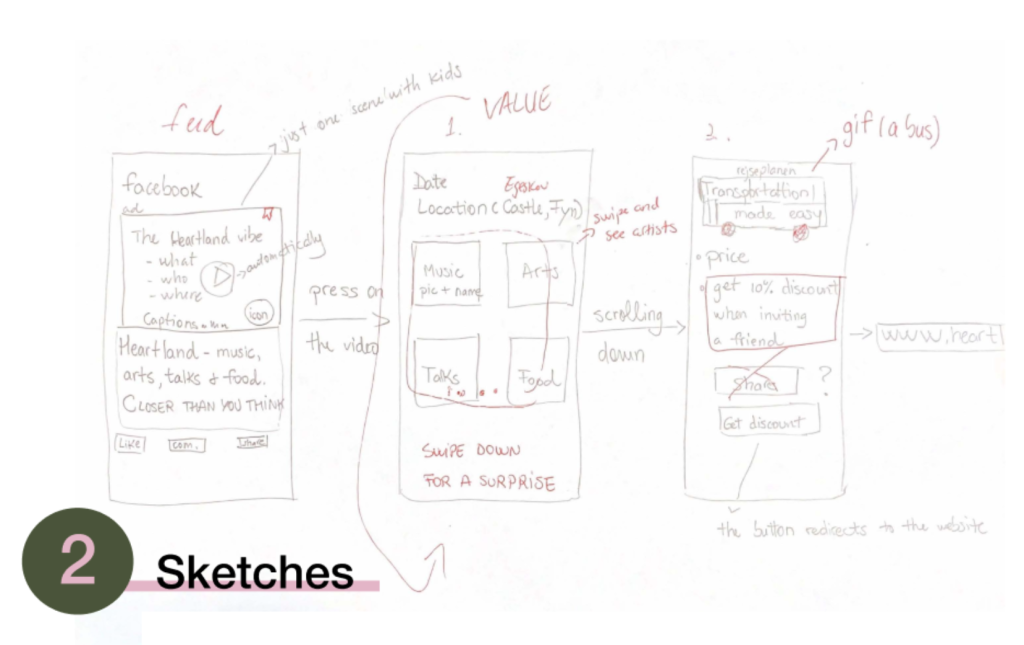 feed
just one scene with kids
facebook
ad
The Heartland vibe
- what
- who
- where
automatically
Captions
icon
Heartland - music,
arts, talks & food.
CLOSER THAN YOU THINK
Like
com.
share
press on
the video
1.
VALUE
Date
Egeskov
Location (Castle, Fyn)
swipe and
see artists
Music
pic + name
Arts
Talks
Food
SWIPE DOWN
FOR A SURPRISE
scrolling
down
2.
gif (a bus)
rejseplanen
Transportation
made easy
• price
• get 10% discount
when inviting
a friend
Share
?
Get discount
the button redirects to the website
www.heartl
2
Sketches